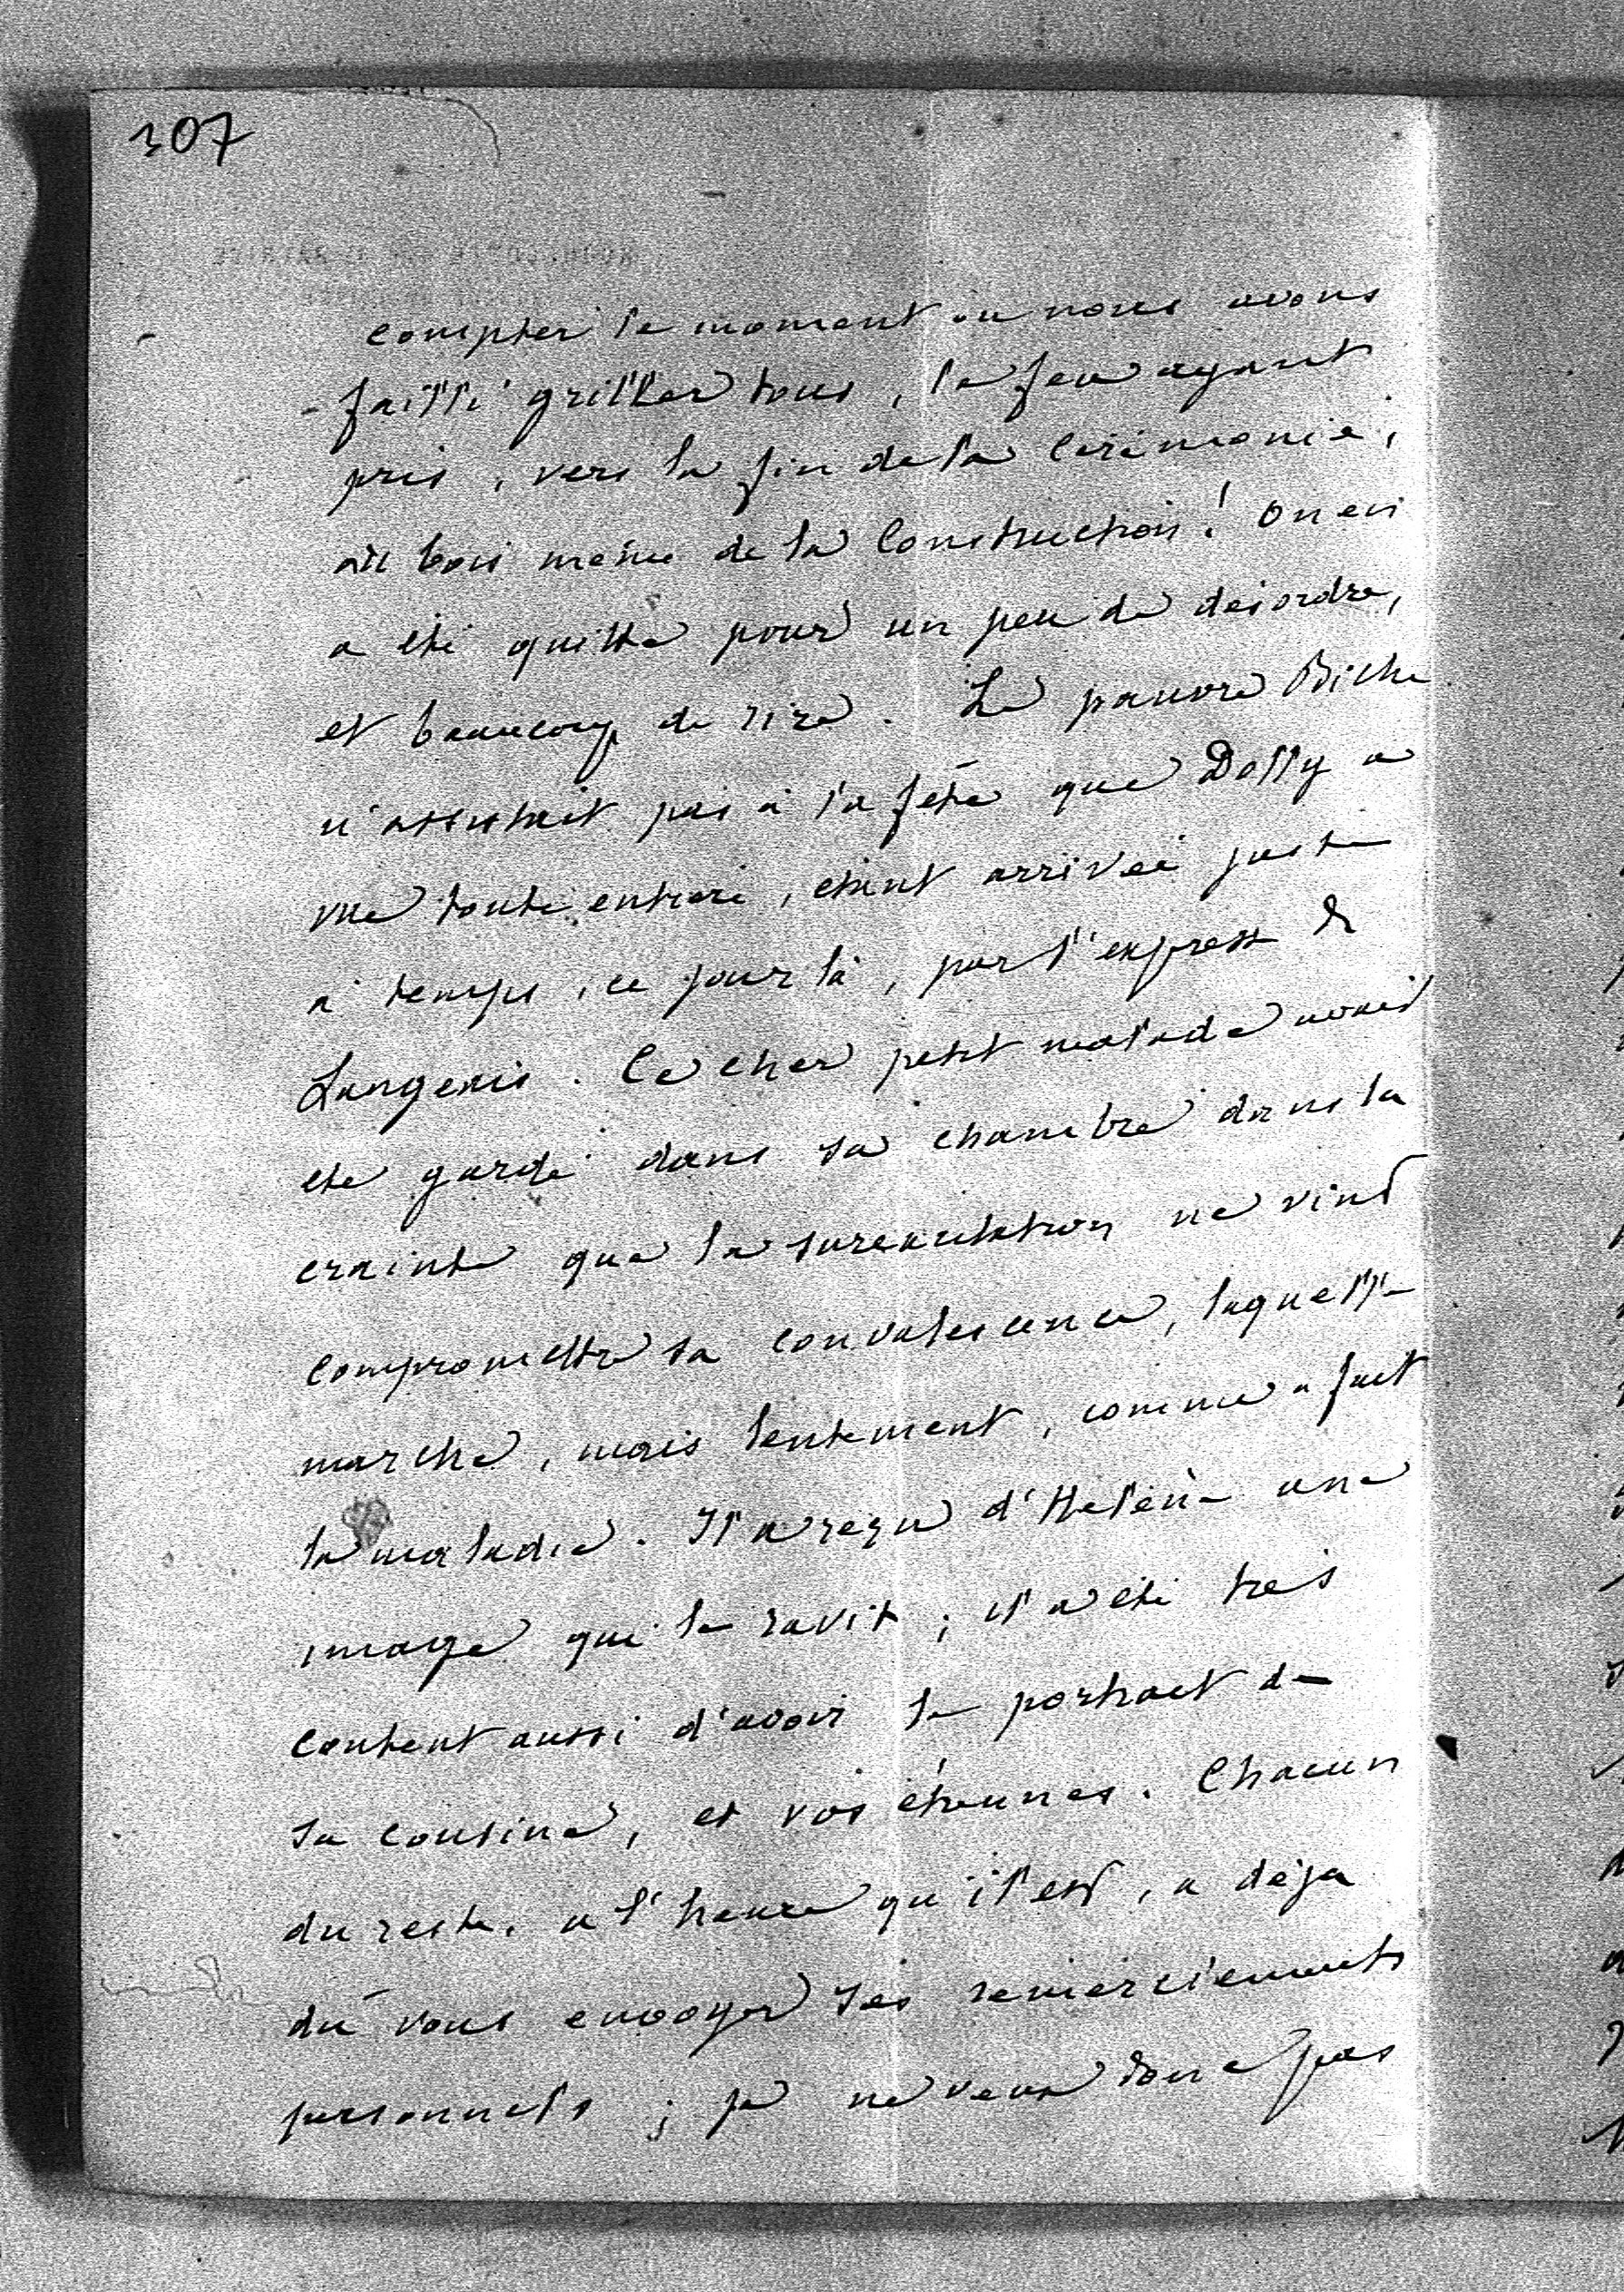 307
compter le moment où nous avons
failli griller tous, le feu ayant
pris, vers la fin de la cérémonie,
au bois même de la Construction! On en
a été quitte pour un peu de désordre,
et beaucoup de rire. Le pauvre Biche
n'assistait pas à la fête que Dolly a
vue toute entière, étant arrivée juste
à temps, ce jour là, par l'express de
Langeais. Ce cher petit malade avait
été gardé dans sa chambre dans la
crainte que la surexcitation ne vint
compromettre sa convalescence, laquelle
marche, mais lentement, comme a fait
la maladie. Il a reçu d'Helène une
image qui le ravit; il a été très
content aussi d'avoir le portrait de
sa cousine, et vos étrennes. Chacun
du reste, a l'heure qu'il est, a déjà
dû vous envoyer ses remerciements
personnels; je ne veux donc pas